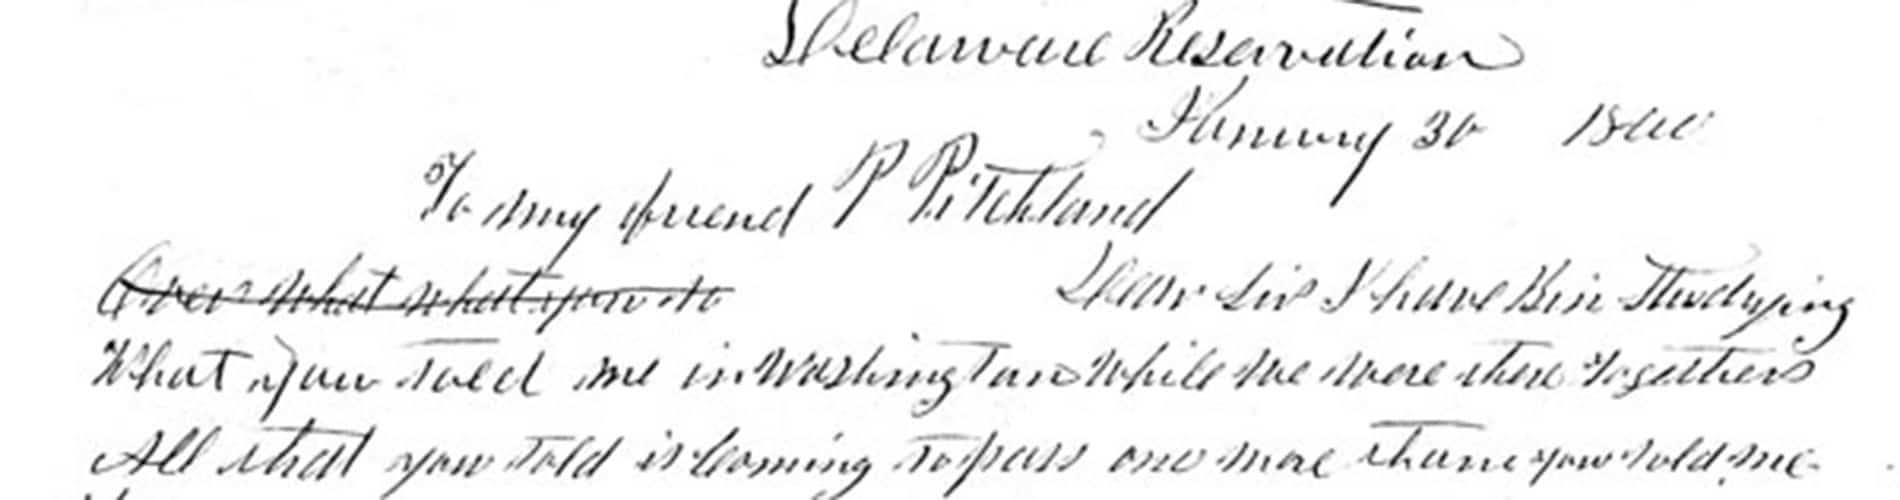 Delaware Reservation
January 30 18
To my friend P Pitchland
Over what what you do
Dear Sir I have Bin Studying
What you toled me in Washington while we were there Together
All that you told is coming to pass one more than you told me